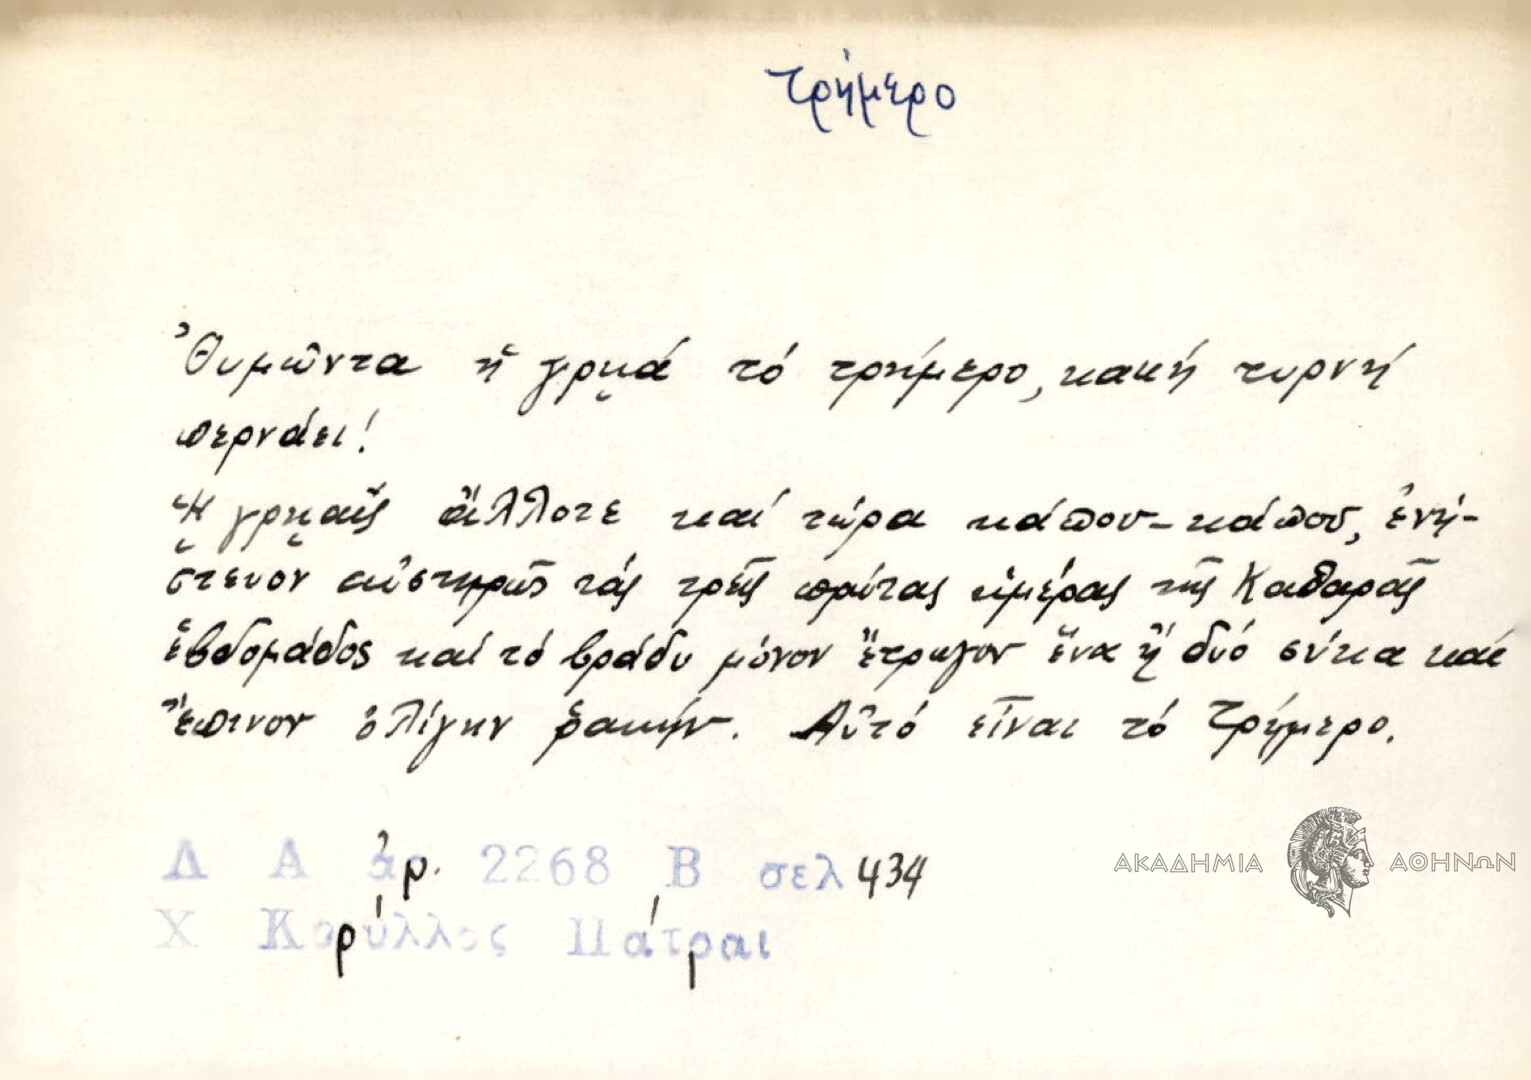 τρήμερο
Ὀθυμῶντα ἡ γρηά τό τρήμερο, κακή τυρνή
περνάει!
Ἡ γρηαῖς ἄλλοτε καί τώρα κάπου-κάπου, ἐνή-
στευον αὐστηρῶς τάς τρεῖς πρώτας ἡμέρας τῆς Καθαρᾶς
ἑβδομάδος καί τό βράδυ μόνον ἔτρωγον ἕνα ἢ δυό σύκα καί
ἔπινον ὀλίγην ῥακήν. Αὐτό εἶναι τό Τρήμερο.
Λ Α ἀρ. 2268 Β σελ 434
Χ Κορύλλος Πάτραι
ΑΚΑΔΗΜΙΑ ΑΘΗΝΩΝ